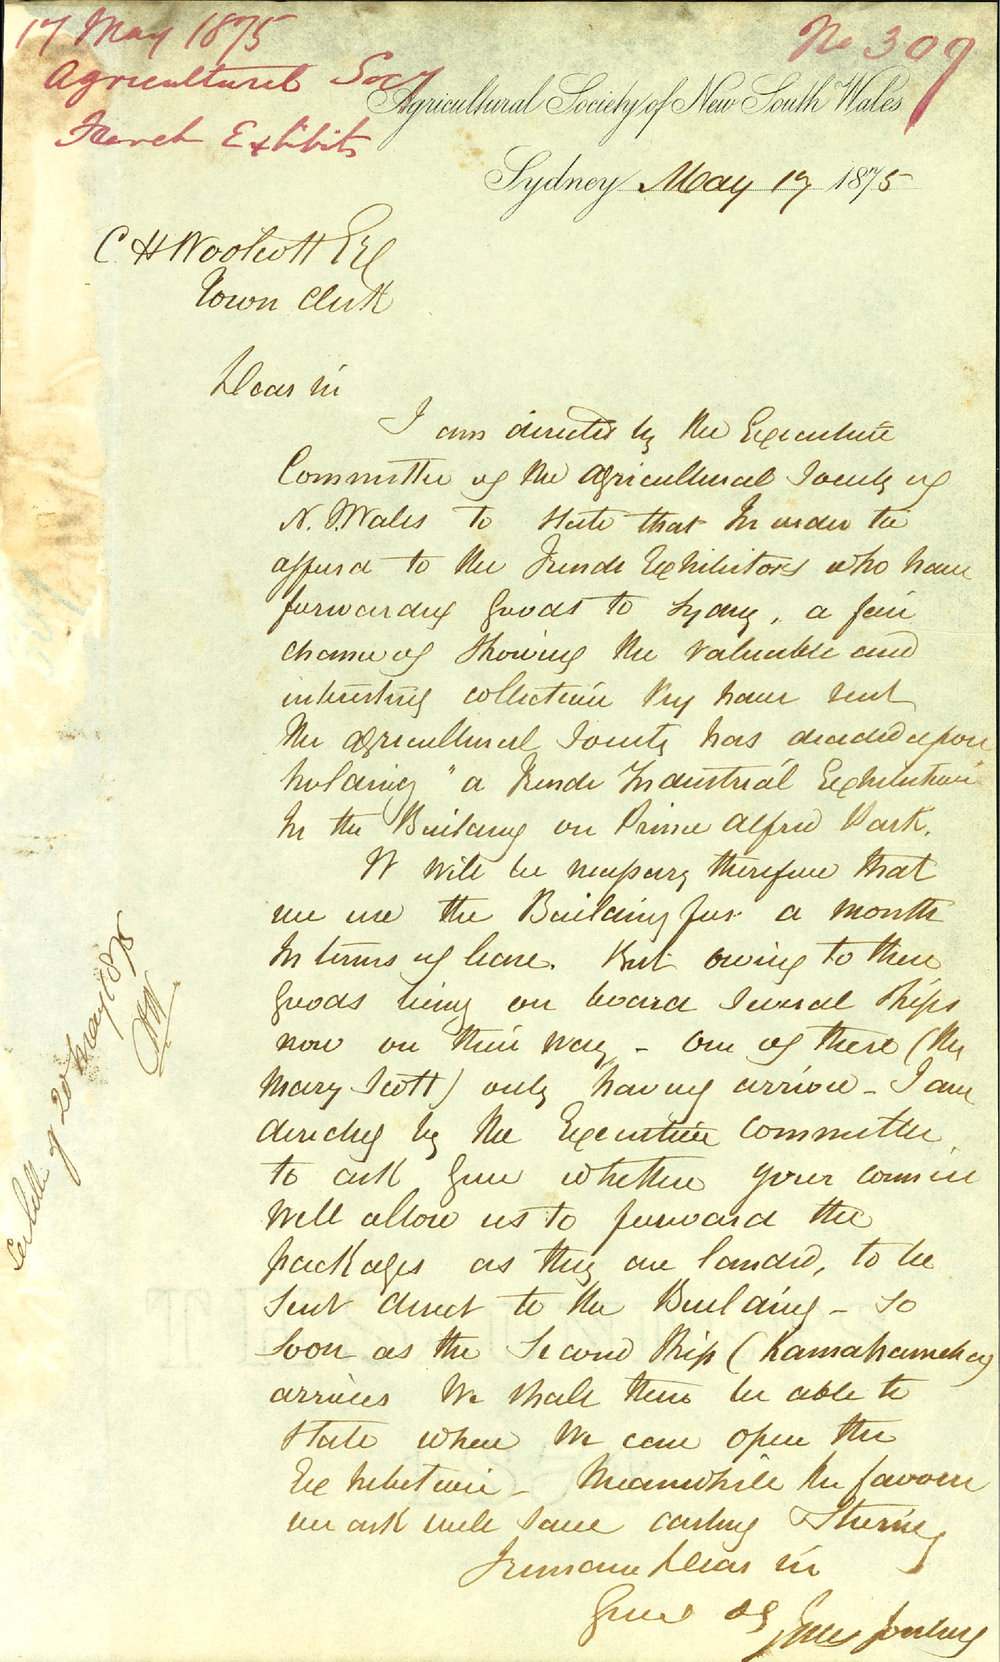 17 May 1875
No 309
Agricultural Socy
French Exhibits
Agricultural Society of New South Wales
Sydney May 17 1875
C. H Woolcott Esq
Town Clerk
Dear Sir
I am directed by the Executive
Committee of the Agricultural Society of
N. S. Wales to state that In order to
afford to the French Exhibitors who have
forwarded goods to Sydney, a fair
chance of showing the valuable and
interesting collection they have sent
the Agricultural Society has decided upon
holding "a French Industrial Exhibition
In the Building on Prince Alfred Park.
It will be necessary therefore that
we use the Building for a month
In terms of lease. But owing to these
goods being on board several ships
now on their way - one of these (the
Mary Scott) only having arrived - I am
directed by the Executive Committee
to ask you whether your council
will allow us to forward the
packages as they are landed, to be
sent direct to the Building - So
soon as the Second Ship (Kamahameha)
arrives We shall then be able to
state when We can open the
Exhibition - Meanwhile the favour
we ask will save carting & storing
I remain Dear Sir
Yours
Jules Joubert
See letter of 20 May 1875